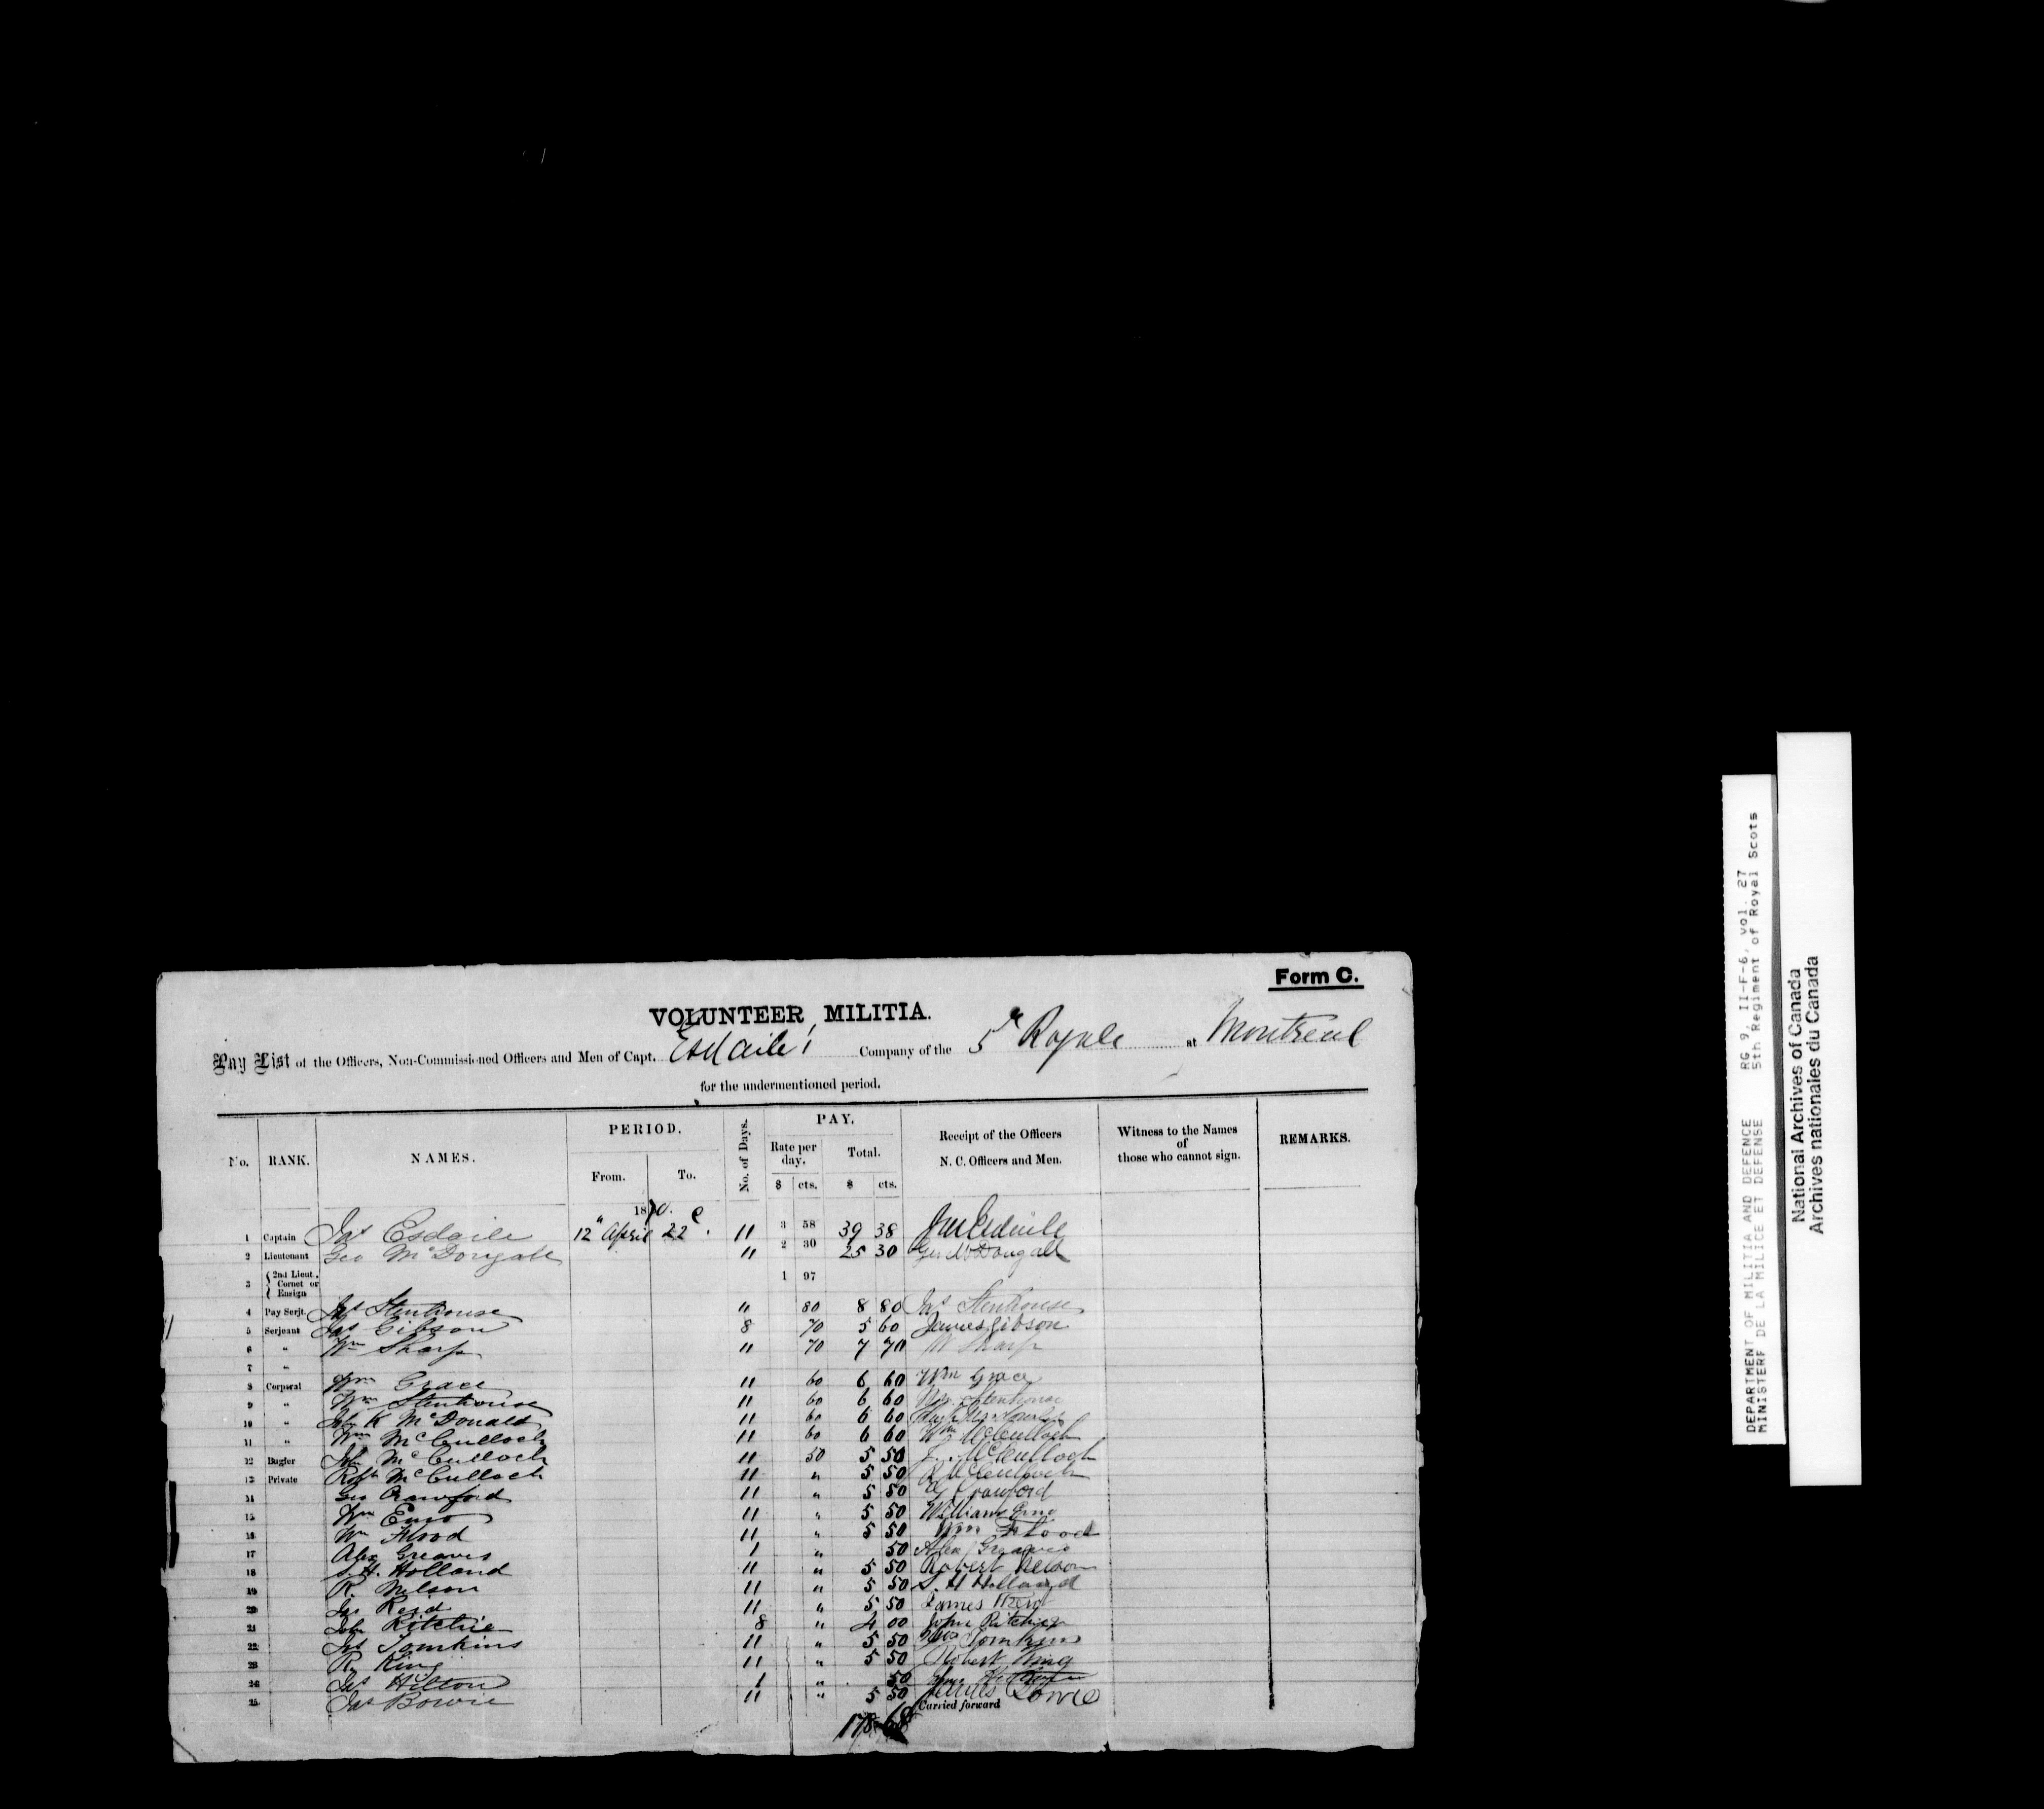 Form C.
VOLUNTEER MILITIA.
Pay List of the Officers, Non-Commissioned Officers and Men of Capt. Esdaile's Company of the 5th Royals at Montreal
for the undermentioned period.
No. RANK. NAMES. PERIOD. From. To. No. of Days. PAY. Rate per day. $ cts. Total. $ cts. Receipt of the Officers N. C. Officers and Men. Witness to the Names of those who cannot sign. REMARKS.
1870.
1 Captain Jas Esdaile 12th April 22d. 11 3 58 39 38 Jas Esdaile
2 Lieutenant Geo McDougall 11 2 30 25 30 Geo McDougall
3 2nd Lieut., Cornet or Ensign 1 97
4 Pay Serjt. Jas Stenhouse 11 80 8 80 Jas Stenhouse
5 Serjeant Jas Gibson 8 70 5 60 James Gibson
6 " Wm Sharp 11 70 7 70 W Sharp
7 "
8 Corporal Wm Grace 11 60 6 60 Wm Grace
9 " Wm Stenhouse 11 60 6 60 Wm Stenhouse
10 " John K McDonald 11 60 6 60
11 " Wm McCulloch 11 60 6 60 Wm McCulloch
12 Bugler John McCulloch 11 50 5 50 J. McCulloch
13 Private Robt McCulloch 11 " 5 50 R McCulloch
14 Geo Crawford 11 " 5 50 G Crawford
15 Wm 11 " 5 50 William
16 Wm Flood 11 " 5 50 Wm Flood
17 Alex Greaves 1 " 50 Alex Greaves
18 S. H. Holland 11 " 5 50 Robert Nelson
19 R. Nelson 11 " 5 50 S. H Holland
20 Jas Reid 11 " 5 50 James Reid
21 John Ritchie 8 " 4 00 John Ritchie
22 Jas Tomkins 11 " 5 50 Jas Tomkins
23 R. King 11 " 5 50 Robert King
24 Jas Hilton 1 " 50
25 Jas Bowie 11 " 5 50 James Bowie
Carried forward
178 68
DEPARTMENT OF MILITIA AND DEFENCE RG 9, II-F-6, vol. 27
MINISTERE DE LA MILICE ET DEFENSE 5th Regiment of Royal Scots
National Archives of Canada
Archives nationales du Canada